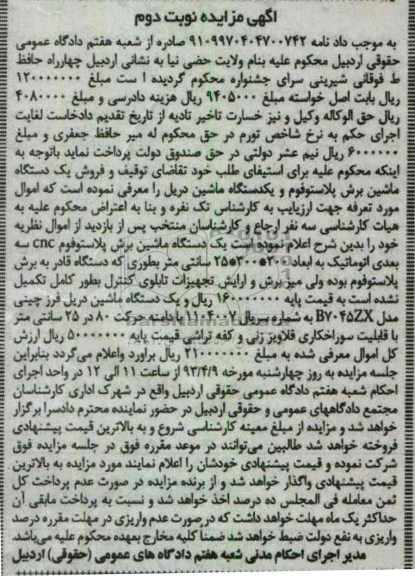 آگهی مزایده نوبت دوم
به موجب داد نامه ۹۱۰۹۹۷۰۴۰۴۷۰۰۷۴۲ صادره از شعبه هفتم دادگاه عمومی
حقوقی اردبیل محکوم علیه بنام ولایت حضی نیا به نشانی اردبیل چهارراه حافظ
ط فوقانی شیرینی سرای جشنواره محکوم گردیده است مبلغ ۱۲۰۰۰۰۰۰۰
ریال بابت اصل خواسته مبلغ ۹۴۰۵۰۰۰ ریال هزینه دادرسی و مبلغ ۴۰۸۰۰۰۰
ریال حق الوکاله وکیل و نیز خسارت تاخیر تادیه از تاریخ تقدیم دادخاست لغایت
اجرای حکم به نرخ شاخص تورم در حق محکوم له میر حافظ جعفری و مبلغ
۶۰۰۰۰۰۰ ریال نیم عشر دولتی در حق صندوق دولت پرداخت نماید باتوجه به
اینکه محکوم علیه برای استیفای طلب خود تقاضای توقیف و فروش یک دستگاه
ماشین برش پلاستوفوم و یکدستگاه ماشین دریل را معرفی نموده است که اموال
مورد تعرفه جهت ارزیایب به کارشناس تک نفره و بنا به اعتراض محکوم علیه به
هیات کارشناسی سه نفر ارجاع و کارشناسان منتخب پس از بازدید از اموال نظریه
خود را بدین شرح اعلام نموده است یک دستگاه ماشین برش پلاستوفوم cnc سه
بعدی اتوماتیک به ابعاد ۲۰۰*۳۰۰*۲۵ سانتی متر بطوری که دستگاه قادر به برش
پلاستوفوم بوده ولی میز برش و ارایش تجهیزات تابلوی کنترل بطور کامل تکمیل
نشده است به قیمت پایه ۱۶۰۰۰۰۰۰۰ ریال و یک دستگاه ماشین دریل فرز چینی
مدل B۷۰۴۵ZX به شماره سریال ۱۱۰۴۰۰۷ با دامنه حرکت ۸۰ در ۲۵ سانتی متر
با قابلیت سوراخکاری قلاویز زنی و کفه تراشی قیمت پایه ۵۰۰۰۰۰۰۰ ریال ارزش
کل اموال معرفی شده به مبلغ ۲۱۰۰۰۰۰۰۰ ریال براورد واعلام می‌گردد بنابراین
جلسه مزایده به روز چهارشنبه مورخه ۹۳/۴/۹ از ساعت ۱۱ الی ۱۲ در واحد اجرای
احکام شعبه هفتم دادگاه عمومی حقوقی اردبیل واقع در شهرک اداری کارشناسان
مجتمع دادگاههای عمومی و حقوقی اردبیل در حضور نماینده محترم دادسرا برگزار
خواهد شد و مزایده از مبلغ معینه کارشناسی شروع و به بالاترین قیمت پیشنهادی
فروخته خواهد شد طالبین می‌توانند در موعد مقرره فوق در جلسه مزایده فوق
شرکت نموده و قیمت پیشنهادی خودشان را اعلام نمایند مورد مزایده به بالاترین
قیمت پیشنهادی واگذار خواهد شد و از برنده مزایده در صورت عدم پرداخت کل
ثمن معامله فی المجلس ده درصد اخذ خواهد شد و نسبت به پرداخت مابقی آن
حداکثر یک ماه مهلت خواهد داشت که در صورت عدم واریزی در مهلت مقرره درصد
واریزی به نفع دولت ضبط خواهد شد ضمنا کلیه مخارج بعهده محکوم علیه می‌باشد
مدیر اجرای احکام مدنی شعبه هفتم دادگاه های عمومی (حقوقی) اردبیل